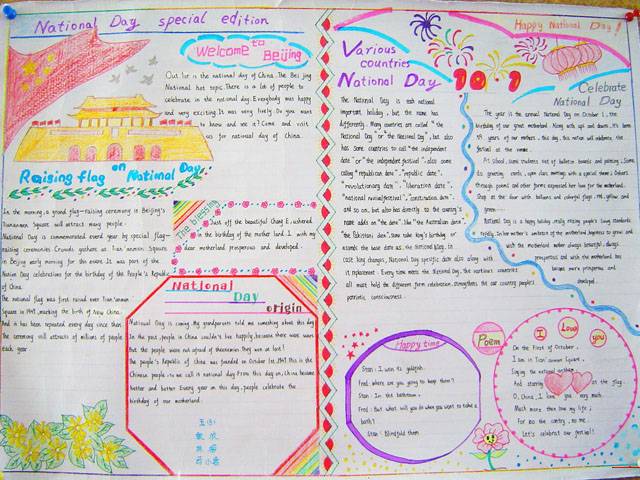 National Day special edition
Welcome to
Beijing
Out lor is the national day of China. The Bei jing
National hot topic. There is a lot of people to
celebrate in the national day. Everybody was happy
and very exciting. It was very lively. Do you want
to know and see it? Come and visit
us for national day of china.
Raising flag on National Day
In the morning, a grand flag-raising ceremony in Beijing's
Tiananmen Square will attract many people.
National Day is commemorated every year by special flag-
raising ceremonies. Crowds gathere as Tian'anmen Square
in Beijing early morning for this event. It was part of the
Nation Day celebrations for the birthday of the People's Republic
of China.
The national flag was first raised over Tian'anmen
Square in 1949, marking the birth of New China.
And it has been repeated every day since then.
The ceremony still attracts of millions of people
each year
The blessing
Just off the beautiful Chang E, ushered
in the birthday of the mother land. I wish my
dear motherland prosperous and developed.
National
Day
origin
National Day is coming. My grandparents told me something about this day.
In the past, people in China couldn't live happily, because there were wars.
But the people were not afraid of the enemies they won at last!
The people's Republic of China was founded on October 1st, 1949. This is the
Chinese people, so we call it national day. From this day on, China became
better and better. Every year on this day, people celebrate the
birthday of our motherland.
Various
countries
National Day
10.1
The National Day is each national
important holiday, but the name has
differently. Many countries are called " the
National Day" or "the National Day", but also
has some countries to call "the independent
date" or "the independent festival", also some
calling "republican date", "republic date",
"revolutionary date", "liberation date",
"national revival festival", "construction date",
and so on, but also has directly to the country's
name adds on "the date", like "the Australian date",
"the Pakistan date". Some take king's birthday or
ascends the base date as the National Day, in
case king changes, National Day specific date also along with
it replacement. Every time meets the National Day, the various countries
all must hold the different form celebration, strengthens the our country people's
patriotic consciousness.
Happy National Day!
Celebrate
National Day
The year is the annual National Day on October 1, the
birthday of our great motherland. Along with
years of our mothers, this day, this nation will celebrate the
festival at the same.
At school, some students out of bulletin boards and painting; Some
greeting cards, open class meeting, with a special theme;
through poems and other forms expressed her love for the motherland.
Stop at the door with balloons and colorful flags, red, yellow and
green
National Day is a happy holiday, really raising people's living standards
with the motherland always beautiful, always
prosperous and with the motherland has
become more prosperous and
developed.
Happy time
Stan: I won its goldfish.
Fred: Where are you going to keep them?
Stan: In the bathroom.
Fred: But what will you do when you want to take a
bath?
Stan: Blindfold them
Poem
I Love you
On the first of October,
I am in Tian'anmen Square,
Singing the national anthem
And staring at the flag.
O, China, I love you very much
Much more than love my life;
For no the contry, no me.
Let's celebrat our festival!